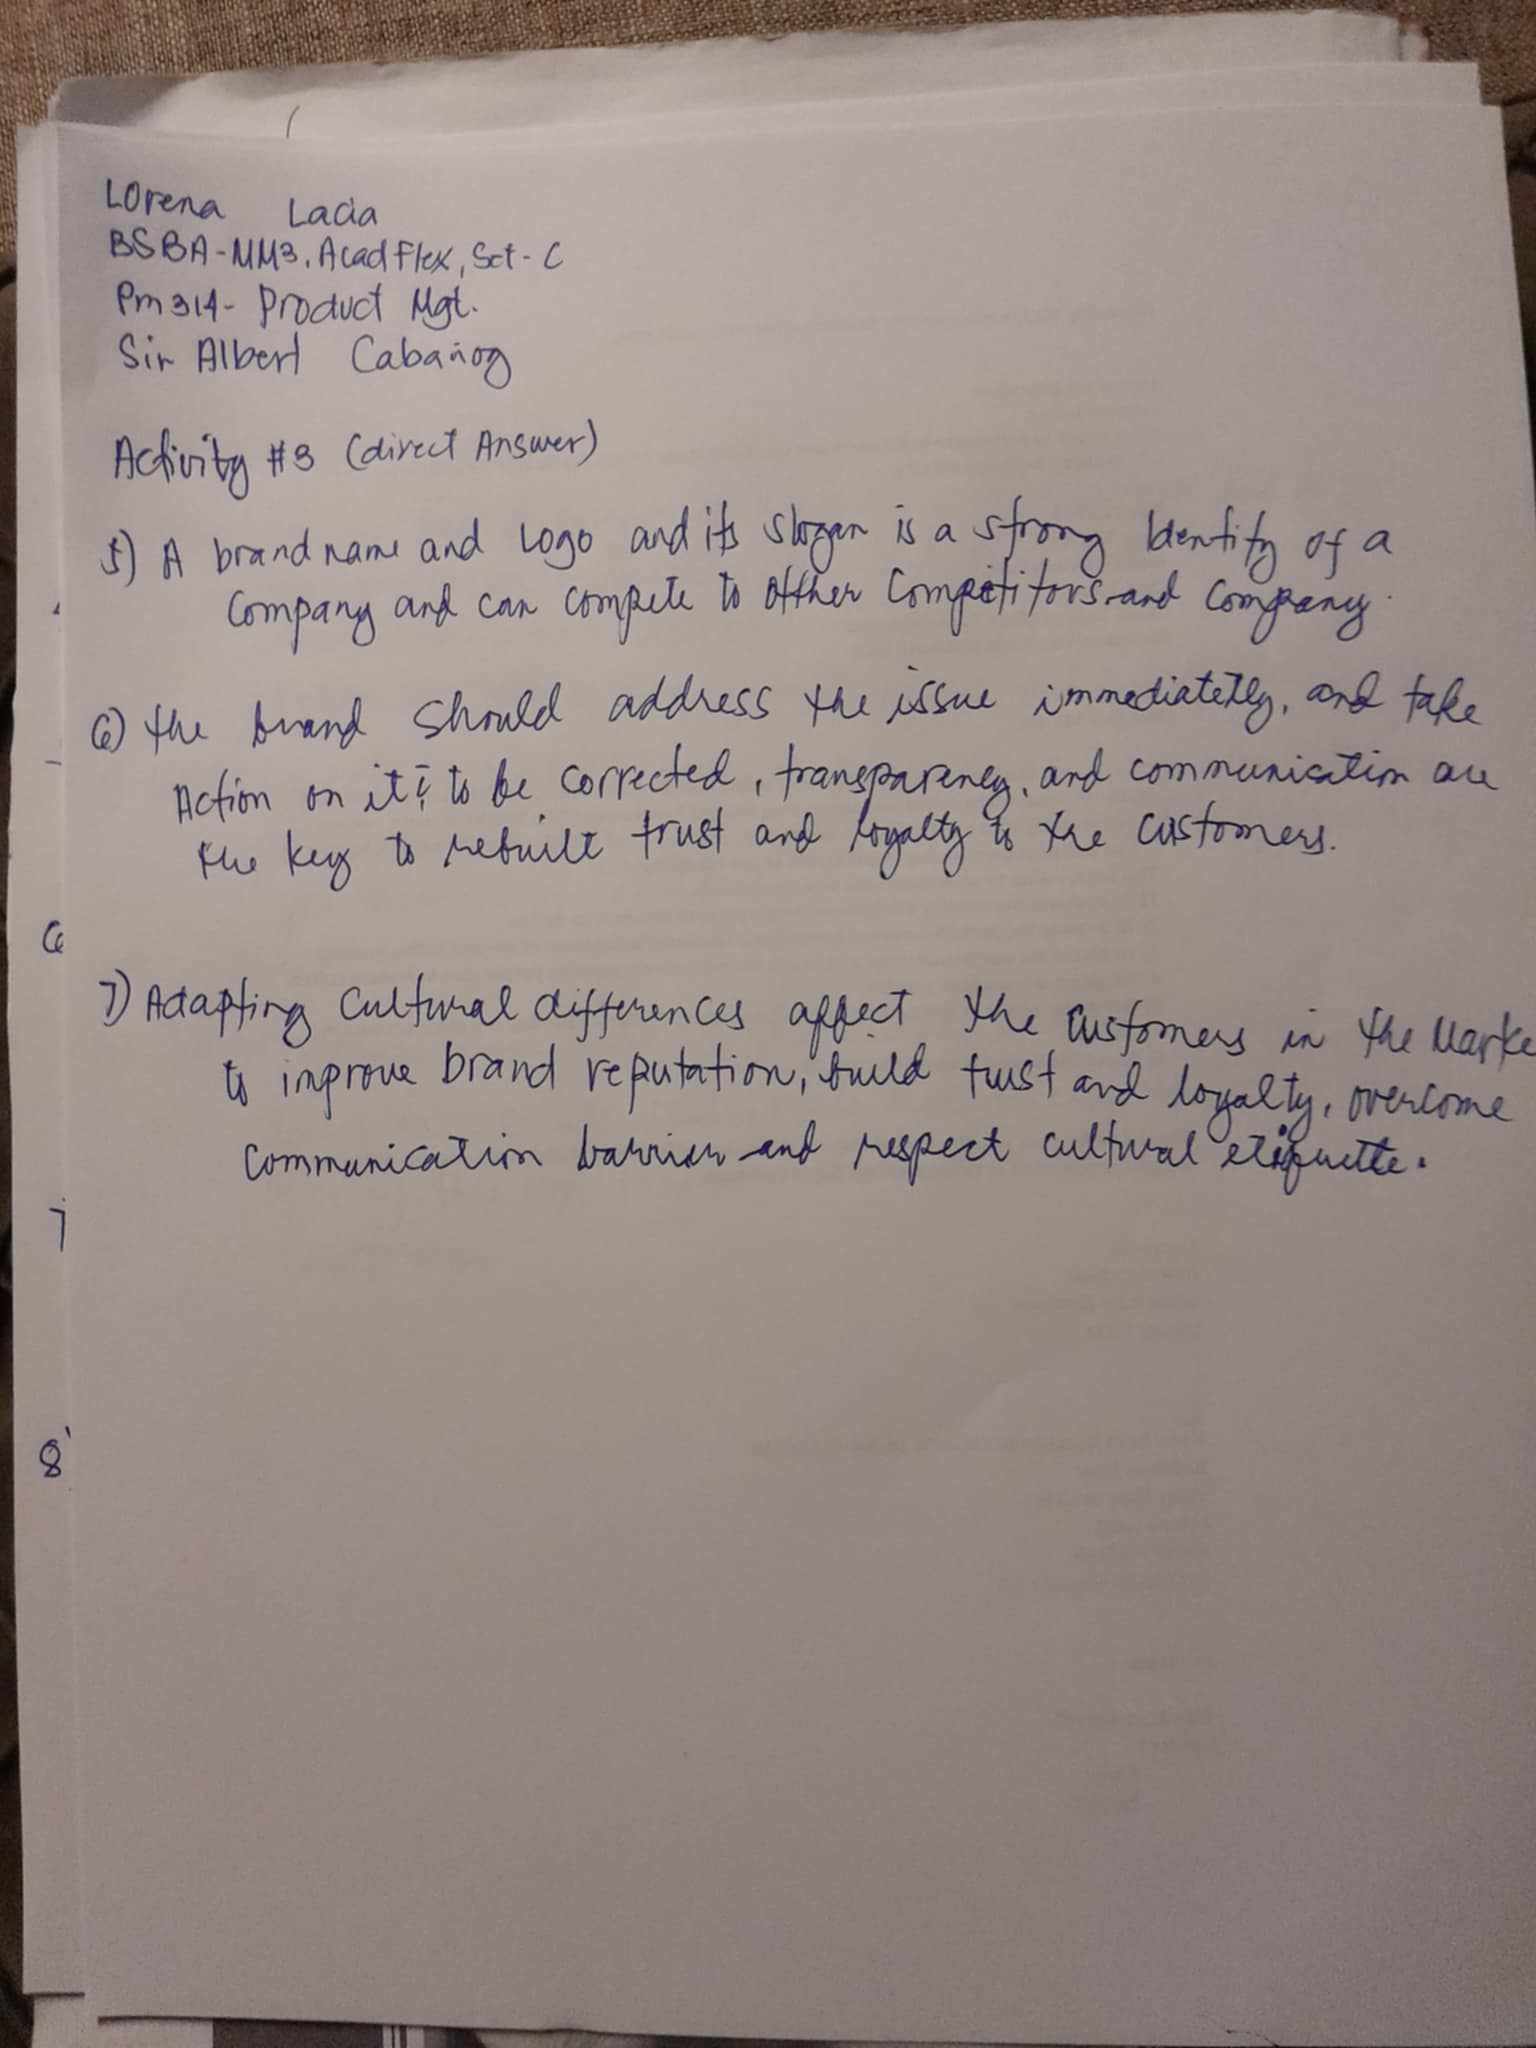 Lorena Lacia
BSBA-MM3, Acad Flex, Set-C
Pm 314- Product Mgt.
Sir Albert Cabañog
Activity #3 (direct Answer)
5) A brand name and Logo and its slogan is a strong Identity of a
Company and can compete to other Competitors and Company.
6) the brand should address the issue immediately, and take
Action on it & to be corrected, transparency, and communication are
the key to rebuilt trust and loyalty to the customers.
7) Adapting Cultural differences affect the Customers in the Marke
to improve brand reputation, build trust and loyalty, overcome
communication barrier and respect cultural etiquette.
6
7
8